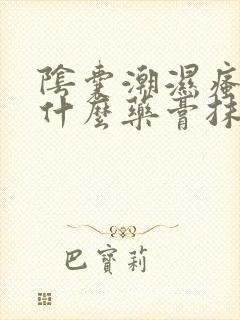 陰囊潮濕瘙
什麼藥膏抹
巴寶莉